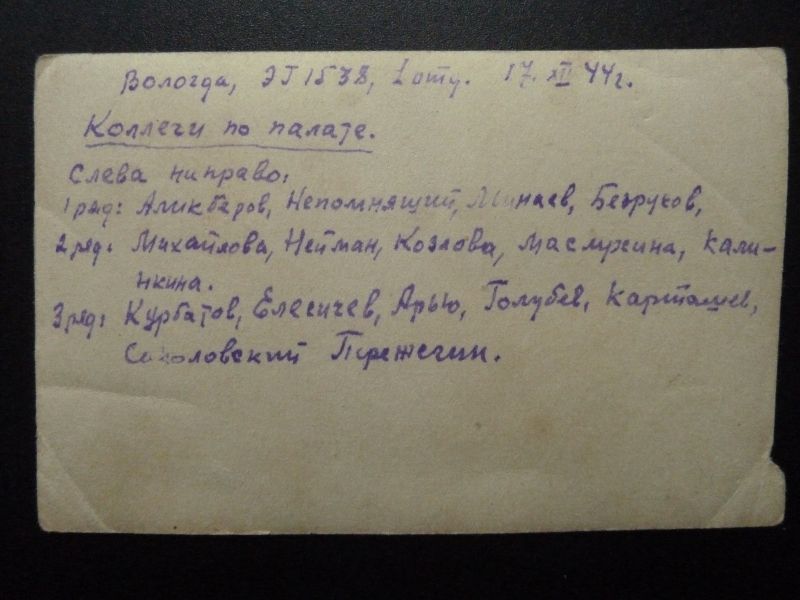 Вологда, ЭГ 1538, 2 отд. 17. XII 44 г.
Коллеги по палате.
Слева направо:
1 ряд: Аликберов, Непомнящий, Минаев, Безруков,
2 ряд: Михайлова, Нейман, Козлова, Маслухина, Кали-
нкина.
3 ряд: Курбатов, Елесичев, Арью, Голубев, Карташев,
Соколовский Пережегин.